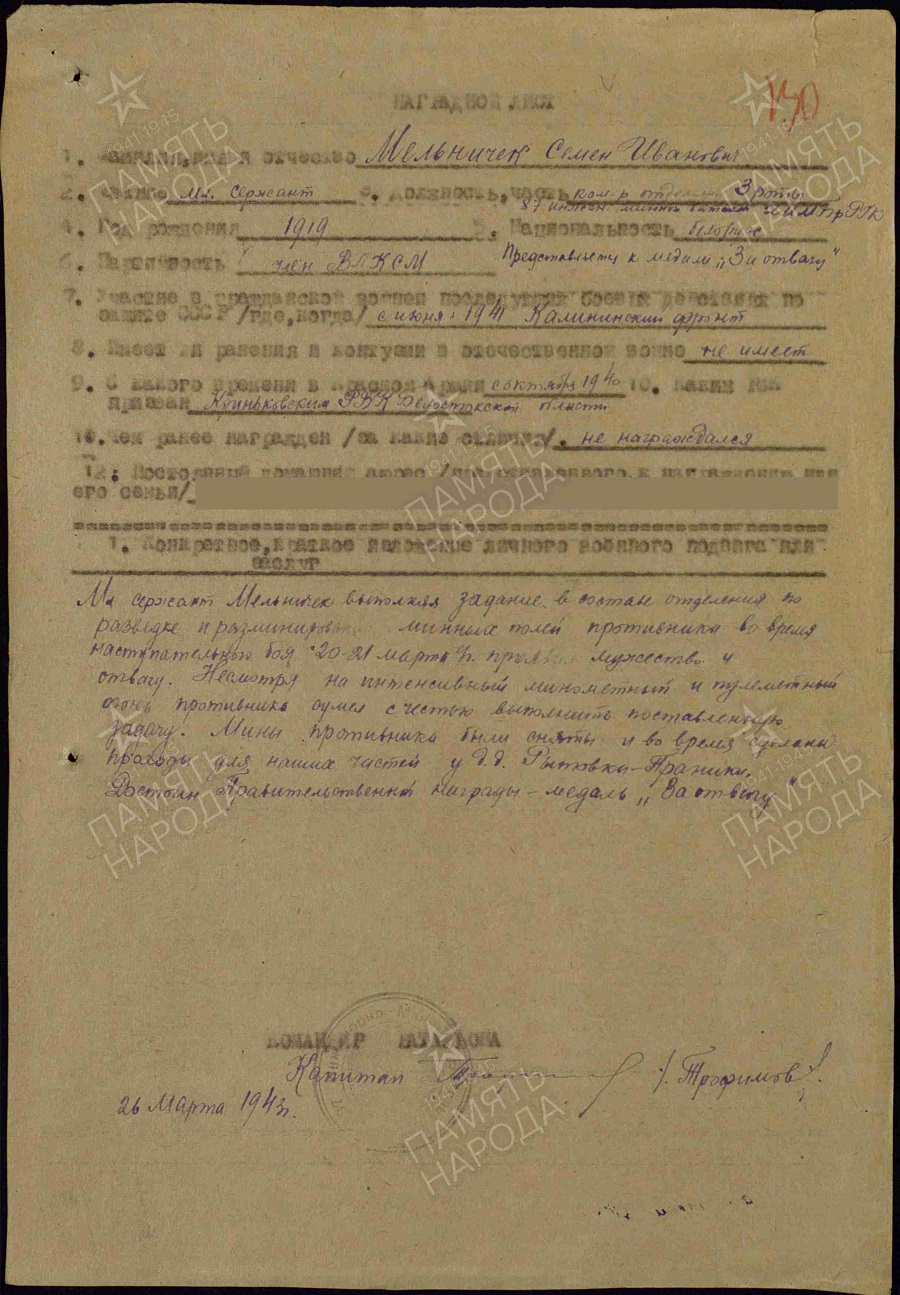 130
НАГРАДНОЙ ЛИСТ
1. Фамилия, имя и отчество Мельничек Семен Иванович
2. Звание мл. сержант 3. Должность, часть ком-р отделения 3 роты
87 инжен. минный
4. Год рождения 1919 5. Национальность белорус
6. Партийность член ВЛКСМ Представляется к медали „За отвагу“
7. Участие в гражданской войне и последующих боевых действиях по
защите СССР /где, когда/ с июня 1941 Калининский фронт
8. Имеет ли ранения и контузии в отечественной войне не имеет
9. С какого времени в Красной Армии с октября 1940 10. Каким РВК
призван Крынковским РВК Белостокской области
Чем ранее награжден /за какие отличия/. не награждался
12. Постоянный домашний адрес /представленного к награждению или
его семьи/
1. Конкретное, краткое изложение личного военного подвига или
заслуг
Мл сержант Мельничек выполняя задание в составе отделения по
разведке и разминированию минных полей противника во время
наступательного боя 20-21 марта проявил мужество и
отвагу. Несмотря на интенсивный минометный и пулеметный
огонь противника сумел с честью выполнить поставленную
задачу. Мины противника были сняты и во время сделаны
проходы для наших частей у д.д.
Достоин Правительственной награды - медаль „За отвагу“
КОМАНДИР БАТАЛЬОНА
Капитан /Трофимов/.
26 Марта 1943г.
ПАМЯТЬ НАРОДА
1941-1945